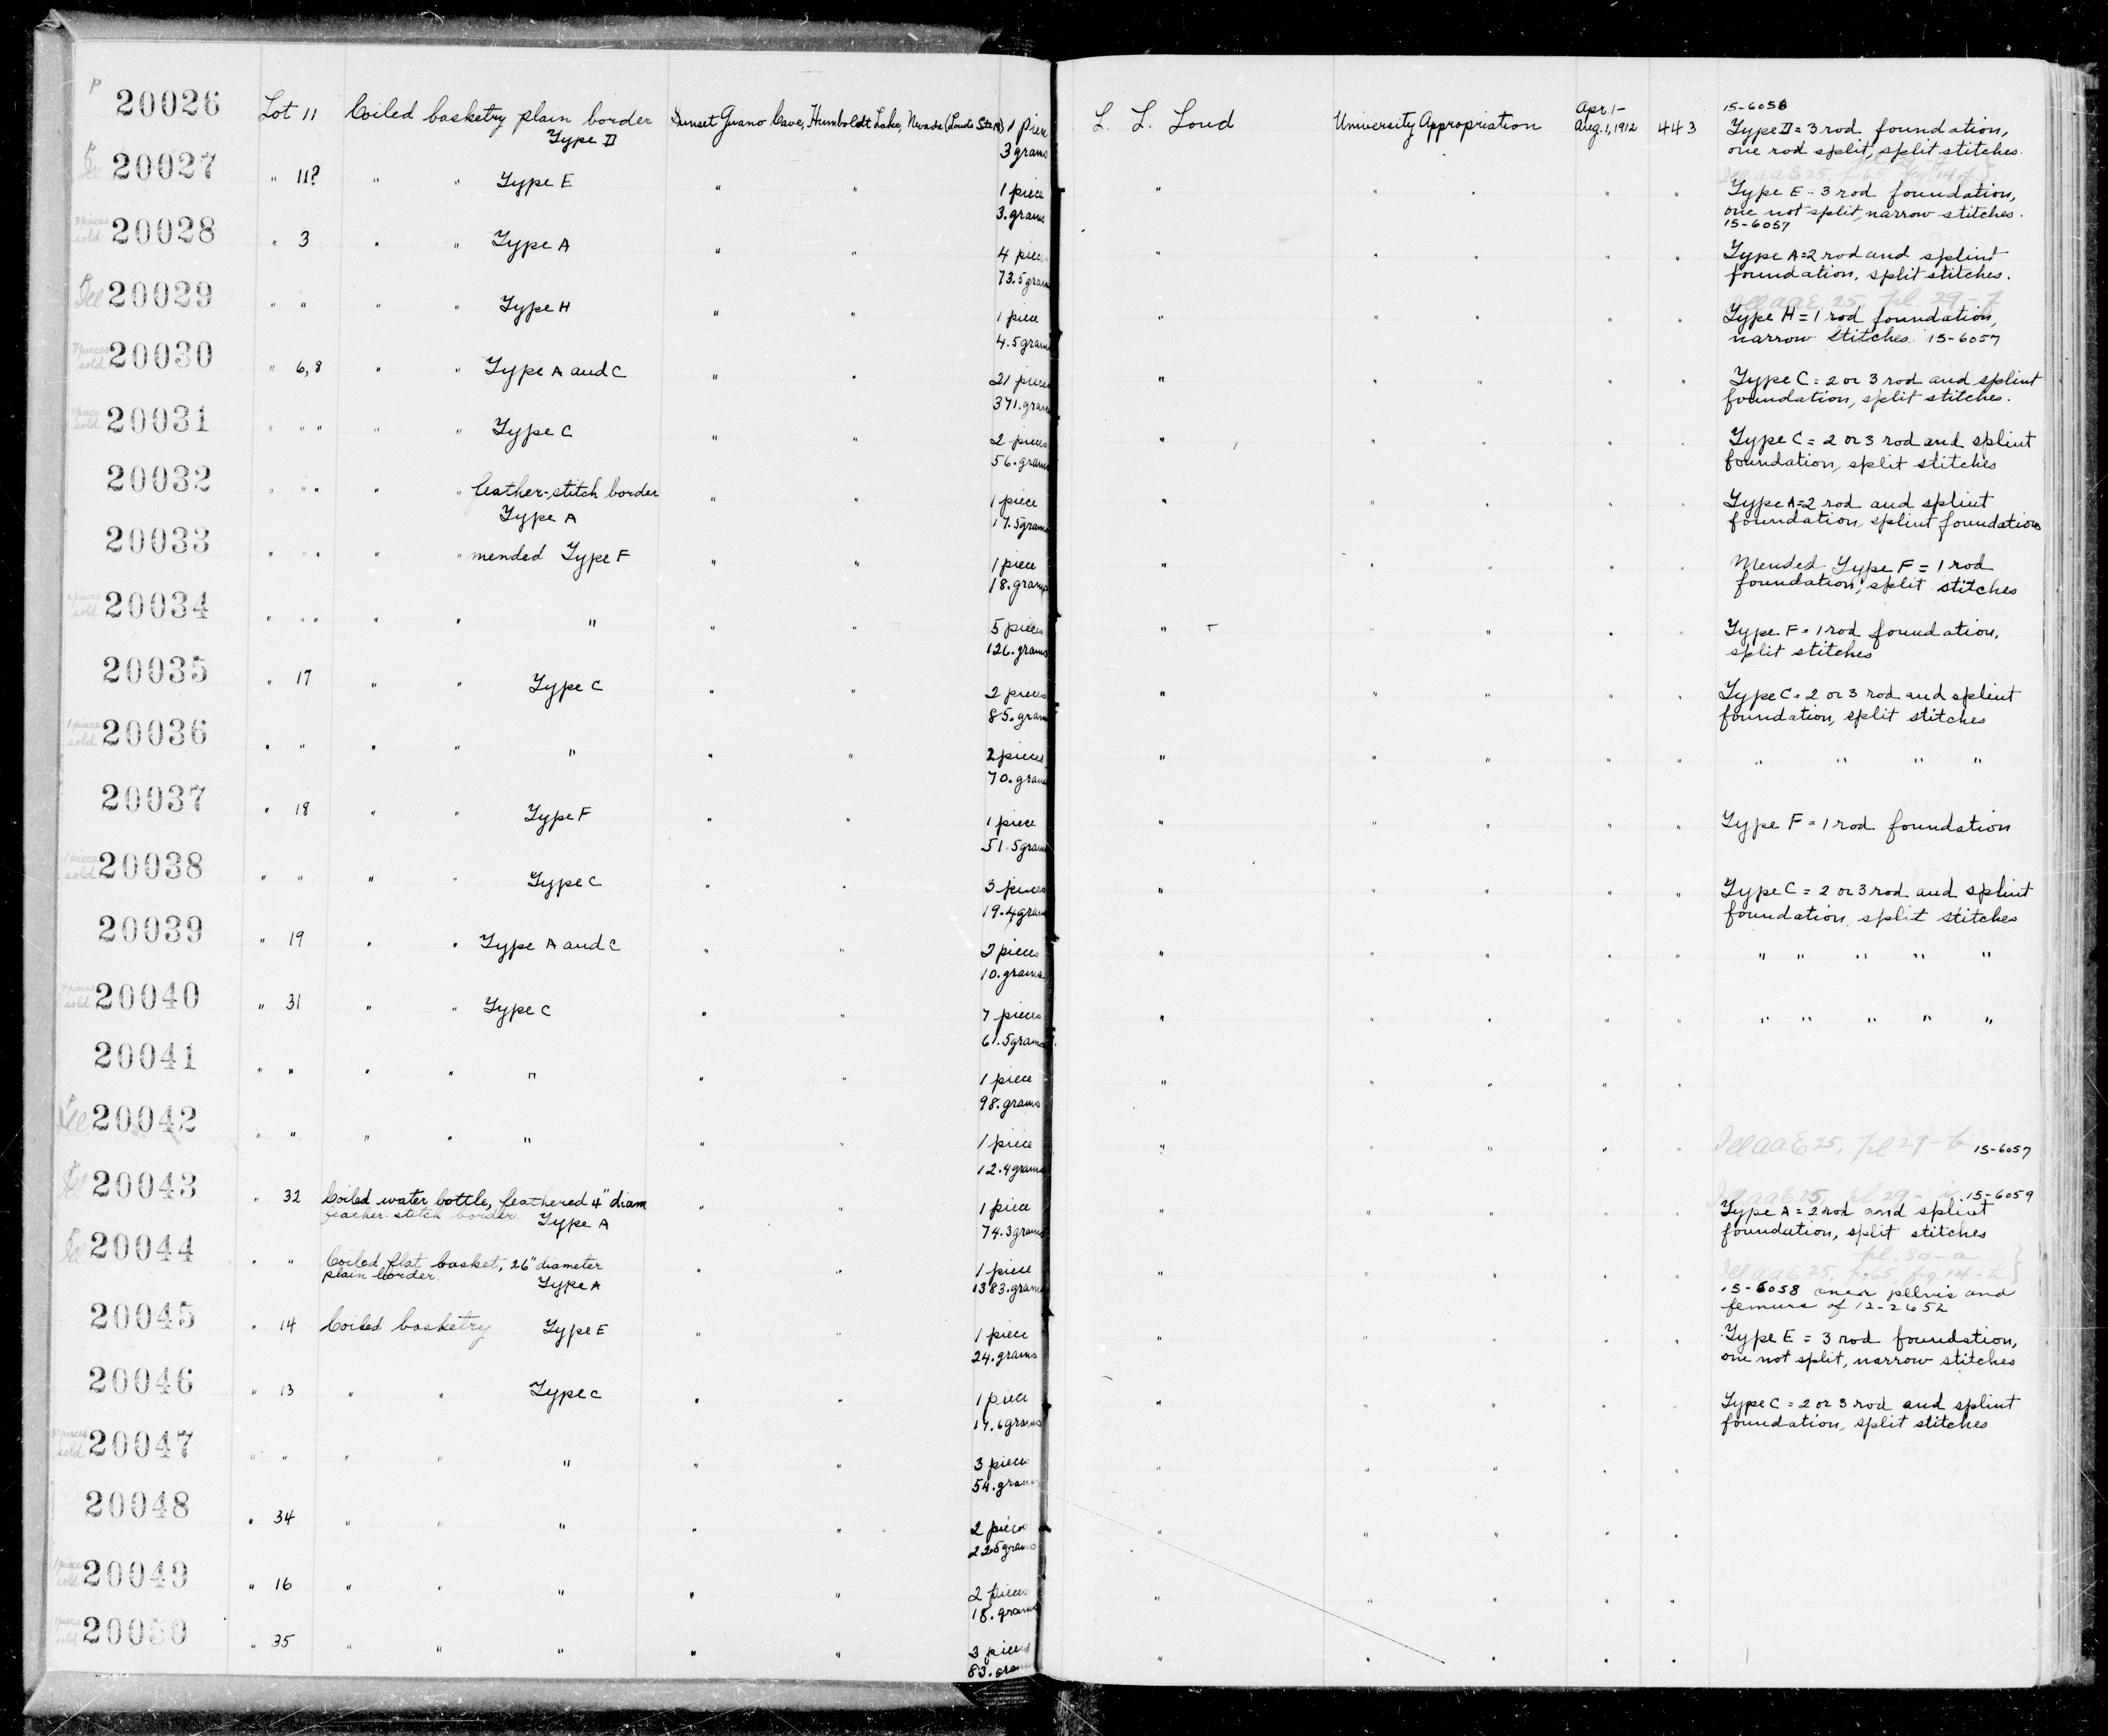 P 20026 Lot 11 Coiled basketry plain border Sunset Guano Cave, Humboldt Lake, Nevada 1 piece L. L. Loud University Appropriation Apr. 1- Aug. 1, 1912 443 15-6056
Type D 3 grams Type D = 3 rod foundation,
one rod split, split stitches.
20027 " 11? " " Type E " " 1 piece " " " " " Type E - 3 rod foundation,
3. grams one not split, narrow stitches.
15-6057
3 pieces sold 20028 " 3 " " Type A " " 4 pieces " " " " " Type A=2 rod and splint
73.5 grams foundation, split stitches.
Ill AAE 25, pl. 29-f
Ill 20029 " " " " Type H " " 1 piece " " " " " Type H = 1 rod foundation,
4.5 grams narrow stitches. 15-6057
7 pieces sold 20030 " 6, 8 " " Type A and C " " 21 pieces " " " " " Type C = 2 or 3 rod and splint
371. grams foundation, split stitches.
1 piece sold 20031 " " " " " Type C " " 2 pieces " " " " " Type C = 2 or 3 rod and splint
56. grams foundation, split stitches
20032 " " " " " feather-stitch border " " 1 piece " " " " " Type A=2 rod and splint
Type A 17.5 grams foundation, splint foundation
20033 " " " " " mended Type F " " 1 piece " " " " " Mended Type F = 1 rod
18. grams foundation, split stitches
sold 20034 " " " " " " " " 5 pieces " " " " " Type F = 1 rod foundation,
126. grams split stitches
20035 " 17 " " Type C " " 2 pieces " " " " " Type C = 2 or 3 rod and splint
85. grams foundation, split stitches
1 piece sold 20036 " " " " " " " 2 pieces " " " " " " " " "
70. grams
20037 " 18 " " Type F " " 1 piece " " " " " Type F = 1 rod foundation
51.5 grams
1 piece sold 20038 " " " " Type C " " 3 pieces " " " " " Type C = 2 or 3 rod and splint
19.4 grams foundation, split stitches
20039 " 19 " " Type A and C " " 2 pieces " " " " " " " " " "
10. grams
sold 20040 " 31 " " Type C " " 7 pieces " " " " " " " " " "
61.5 grams
20041 " " " " " " " 1 piece " " " " "
98. grams
Ill 20042 " " " " " " " 1 piece " " " " " Ill AAE 25, pl 29-b 15-6057
12.4 grams
Ill 20043 " 32 Coiled water bottle, feathered 4" diam " " 1 piece " " " " " Ill AAE 25, pl 29- 15-6059
feather-stitch border Type A 74.3 grams Type A = 2 rod and splint
foundation, split stitches
pl. 30-a
Ill 20044 " " Coiled flat basket, 26" diameter " " 1 piece " " " " " Ill AAE 25, p. 65, fig. 14-
plain border. Type A 1383. grams 15-6058 over pelvis and
femurs of 12-2652
20045 " 14 Coiled basketry Type E " " 1 piece " " " " " Type E = 3 rod foundation,
24. grams one not split, narrow stitches
20046 " 13 " " Type C " " 1 piece " " " " " Type C = 2 or 3 rod and splint
17.6 grams foundation, split stitches
sold 20047 " " " " " " " 3 pieces " " " " "
54. grams
20048 " 34 " " " " " 2 pieces " " " " "
22.5 grams
1 piece sold 20049 " 16 " " " " " 2 pieces " " " " "
18. grams
1 piece sold 20050 " 35 " " " " " 3 pieces " " " " "
83. grams